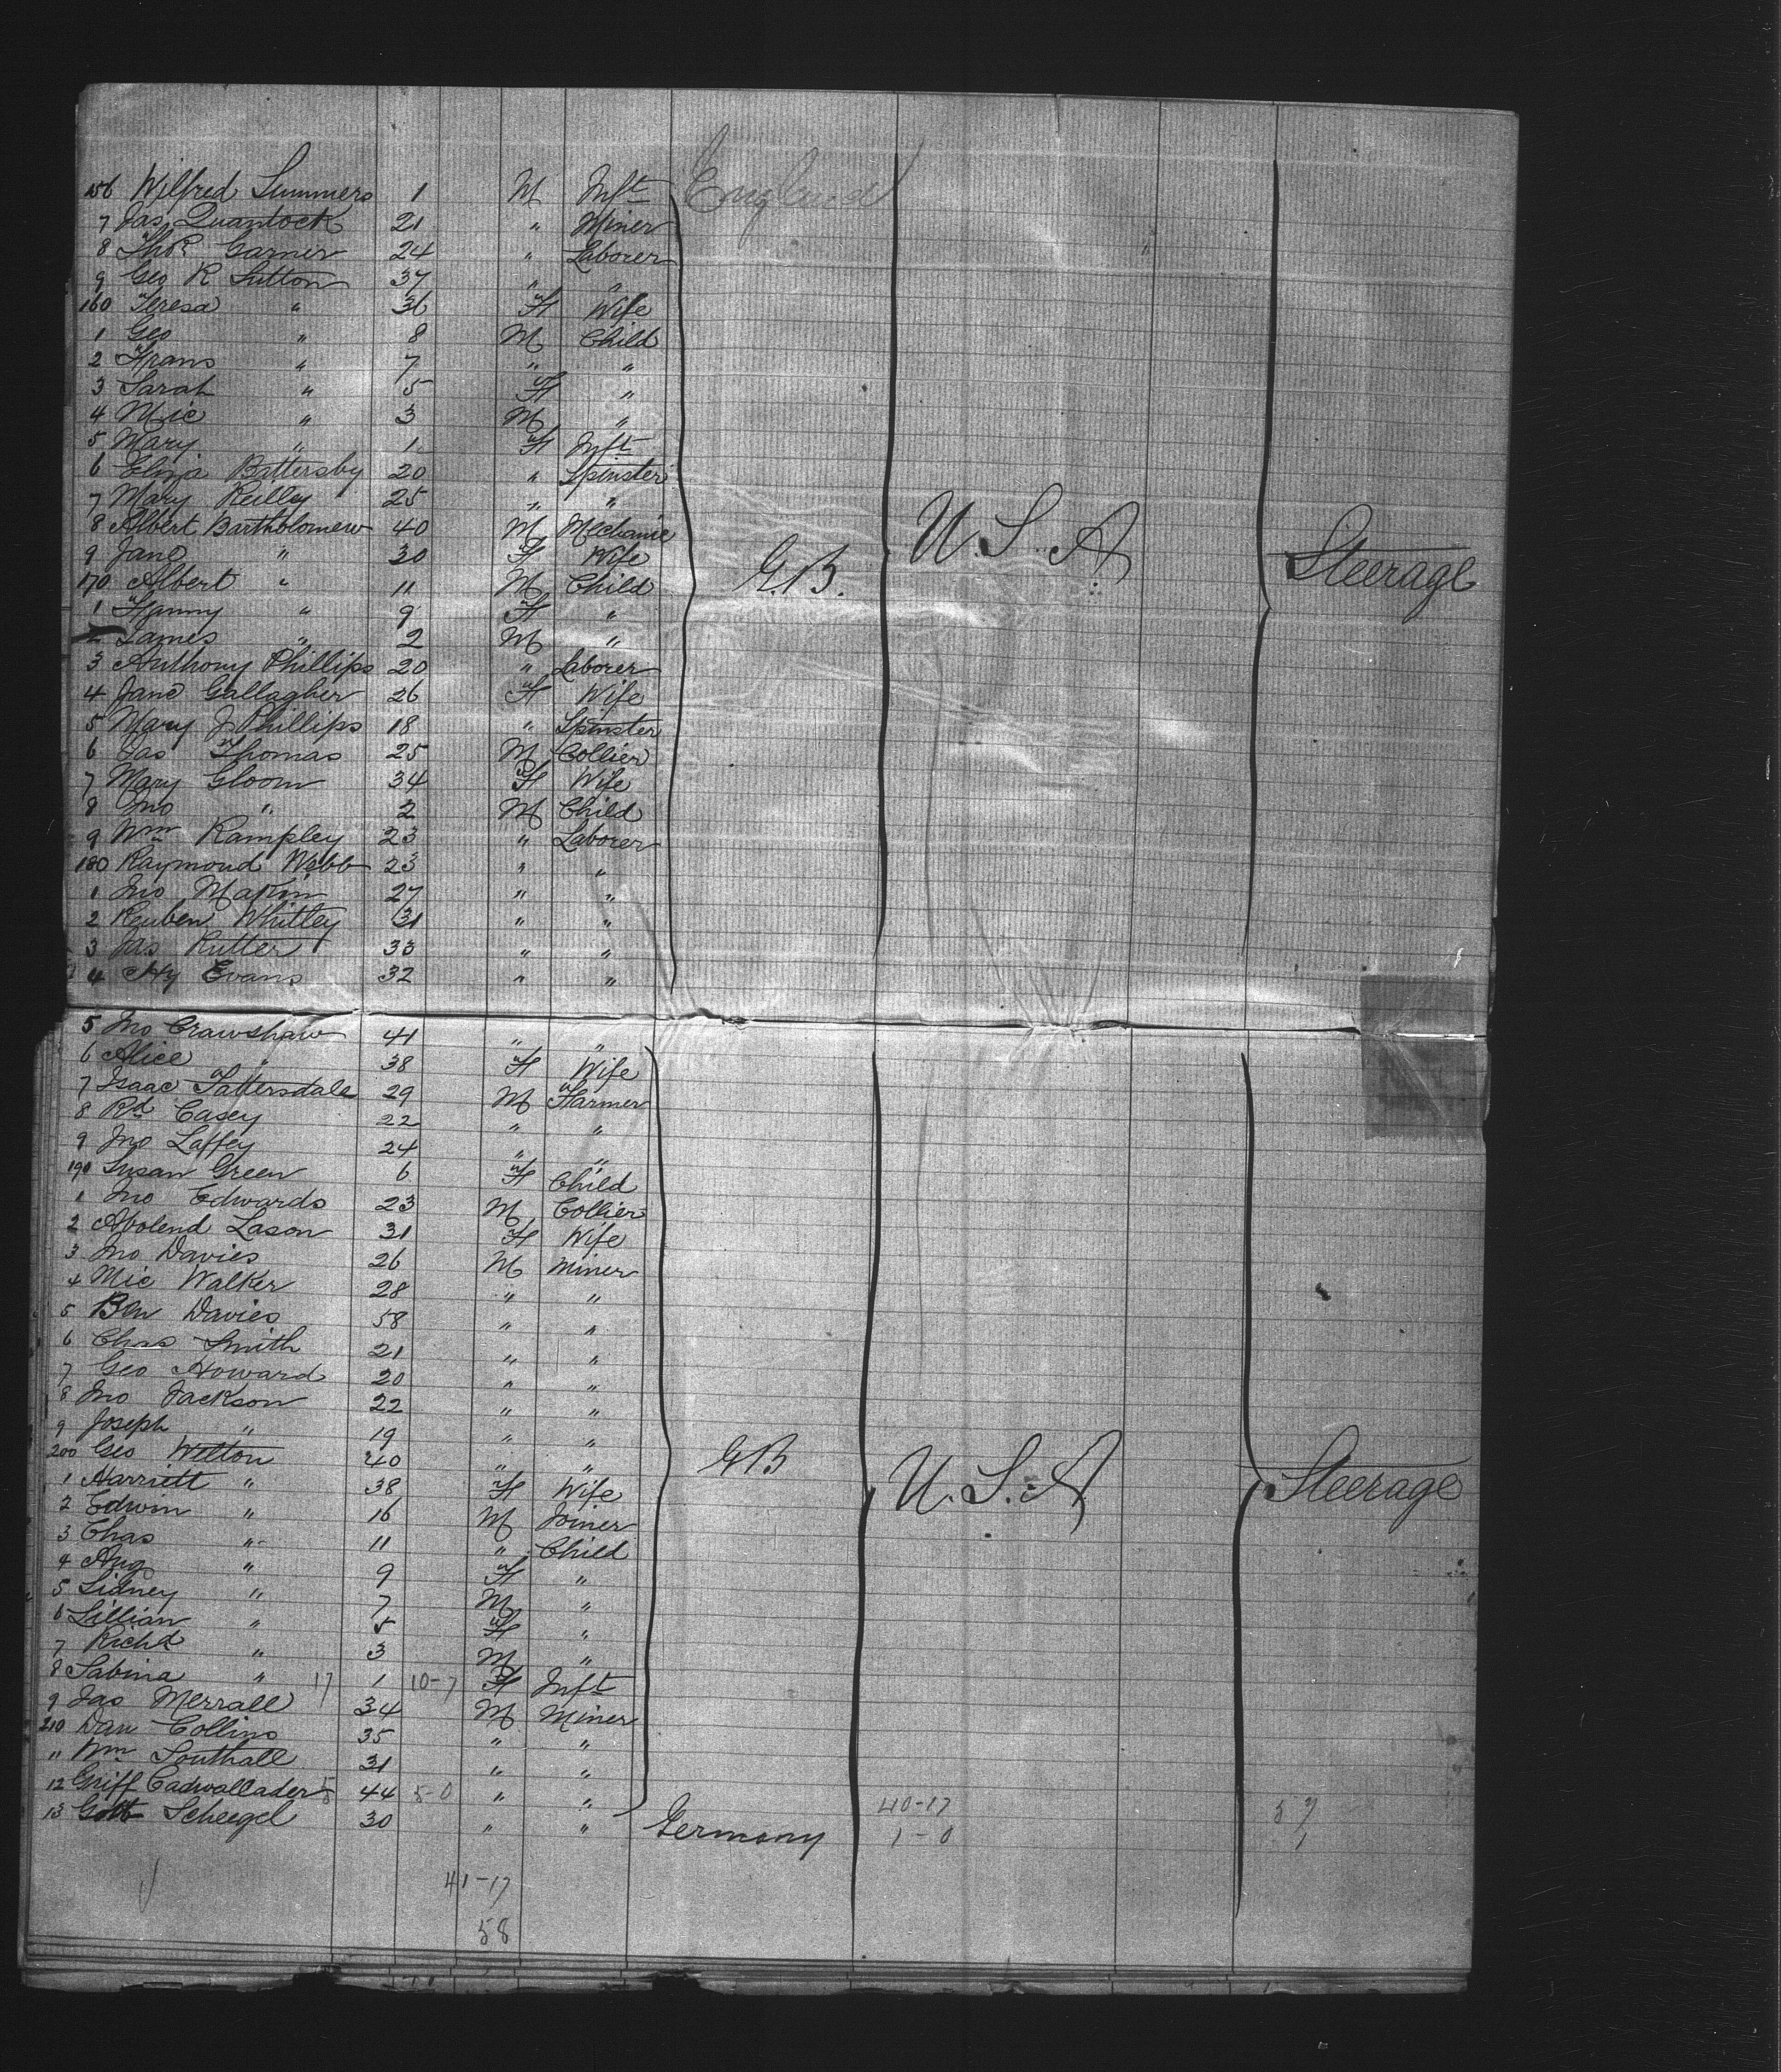 England
156 Wilfred Summers 1 M Inft
7 Jas Quantock 21 " Miner
8 Thos Garner 24 " Laborer
9 Geo R Sutton 37 " "
160 Teresa " 36 F Wife
1 Geo " 8 M Child
2 Frans " 7 " "
3 Sarah " 5 F "
4 Mic " 3 M "
5 Mary " 1 F Inft
6 Eliza Battersby 20 " Spinster
7 Mary Reilley 25 " "
8 Albert Bartholomew 40 M Mechanic
9 Jane " 30 F Wife
G.B. U.S.A Steerage
170 Albert " 11 M Child
1 Fanny " 9 F "
2 James " 2 M "
3 Anthony Phillips 20 " Laborer
4 Jane Gallagher 26 F Wife
5 Mary J Phillips 18 " Spinster
6 Jas Thomas 25 M Collier
7 Mary Gloom 34 F Wife
8 Jno " 2 M Child
9 Wm Rampley 23 " Laborer
180 Raymond Webb 23 " "
1 Jno Makin 27 " "
2 Reuben Whitley 31 " "
3 Jas Rutter 33 " "
4 Hy Evans 32 " "
5 Jno Crawshaw 41 " "
6 Alice " 38 F Wife
7 Isaac Tattersdale 29 M Farmer
8 Rd Casey 22 " "
9 Jno Laffey 24 " "
190 Susan Green 6 F Child
1 Jno Edwards 23 M Collier
2 Lason 31 F Wife
3 Jno Davies 26 M Miner
4 Mic Walker 28 " "
5 Ben Davies 58 " "
6 Chas Smith 21 " "
7 Geo Howard 20 " "
8 Jno Jackson 22 " "
9 Joseph " 19 " "
200 Geo Welton 40 " "
GB U.S.A Steerage
1 Harriett " 38 F Wife
2 Edwin " 16 M Joiner
3 Chas " 11 " Child
4 Aug " 9 F "
5 Sidney " 7 M "
6 Lillian " 5 F "
7 Richd " 3 M "
8 Sabina " 17 1 10-7 F Inft
9 Jas Merrall 34 M Miner
210 Dan Collins 35 " "
11 Wm Southall 31 " "
12 Griff Cadwallader 5 44 5-0 " " 40-17 57
13 Gott Scheegel 30 " " Germany 1-0 1
41-17
58